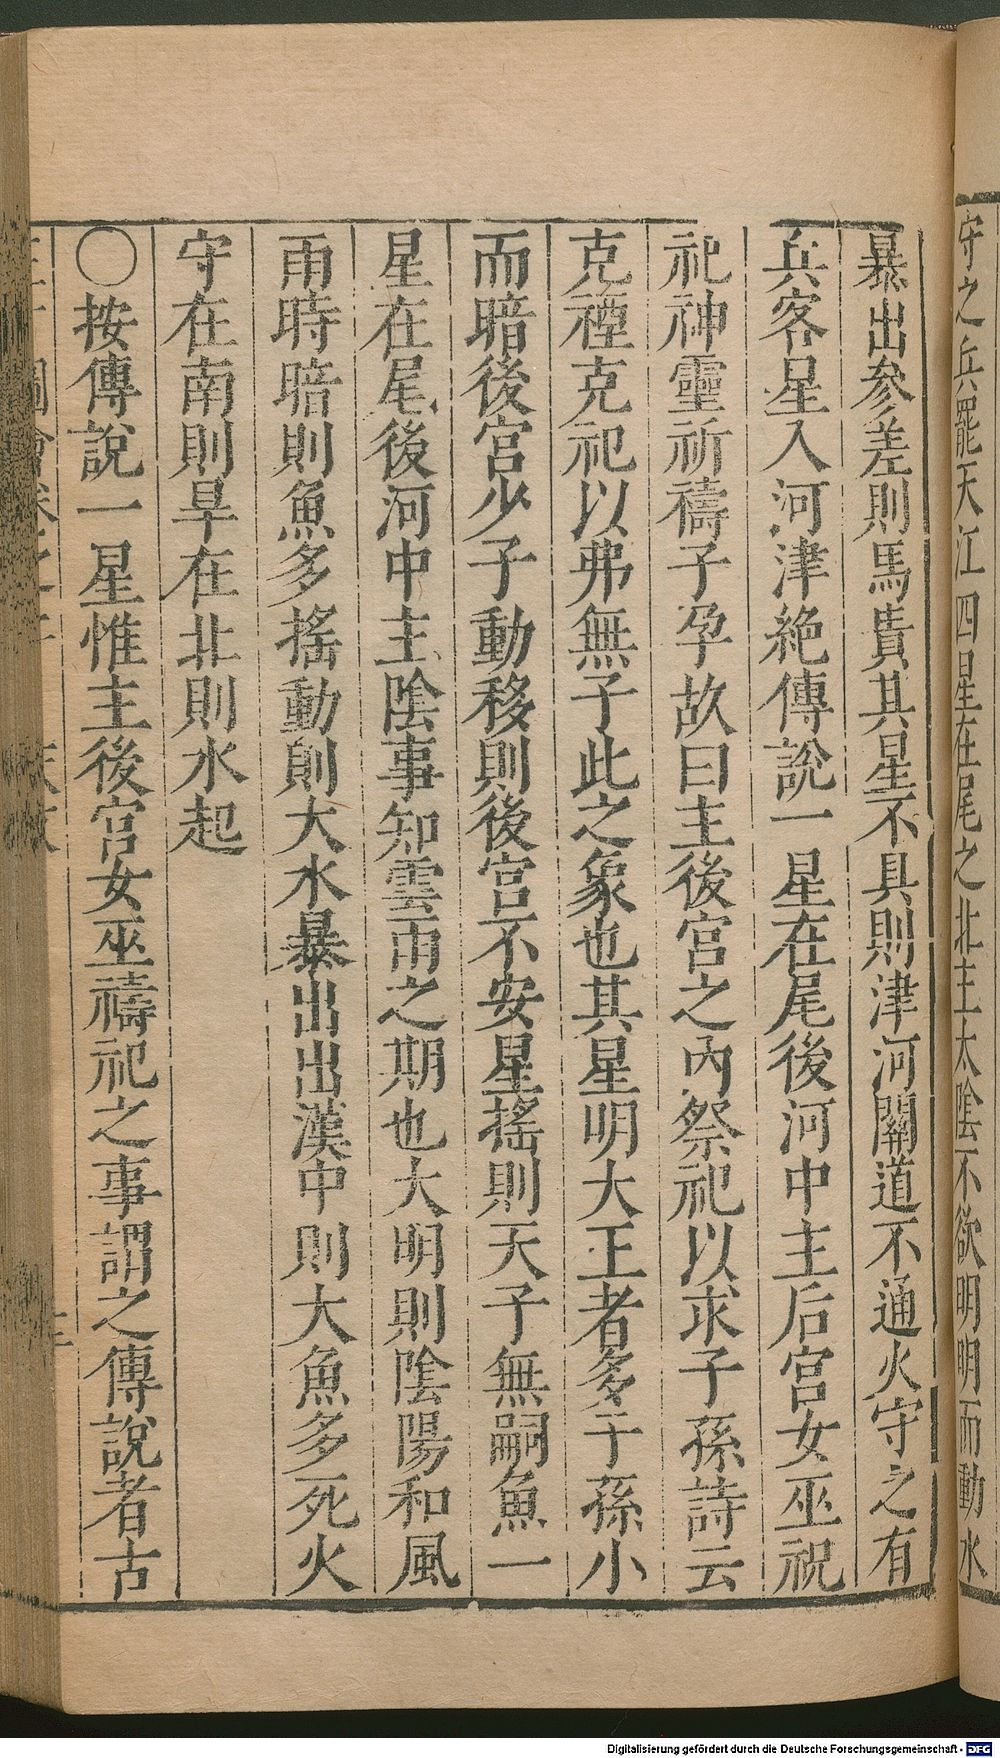 守之兵罷天江四星在尾之北主太陰不欲明明而動水
暴出参差則馬貴其星不具則津河關道不通火守之有
兵客星入河津絶傳説一星在尾後河中主后宫女巫祝
祀神靈祈禱子孕故曰主後宫之内祭祀以求子孫詩云
克禋克祀以弗無子此之象也其星明大王者多子孫小
而暗後宫少子動移則後宫不安星摇則天子無嗣魚一
星在尾後河中主陰事知雲雨之期也大明則陰陽和風
雨時暗則魚多摇動則大水暴出出漢中則大魚多死火
守在南則旱在北則水起
〇按傳說一星惟主後宫女巫禱祀之事謂之傳說者古
Digitalisierung gefördert durch die Deutsche Forschungsgemeinschaft - DFG